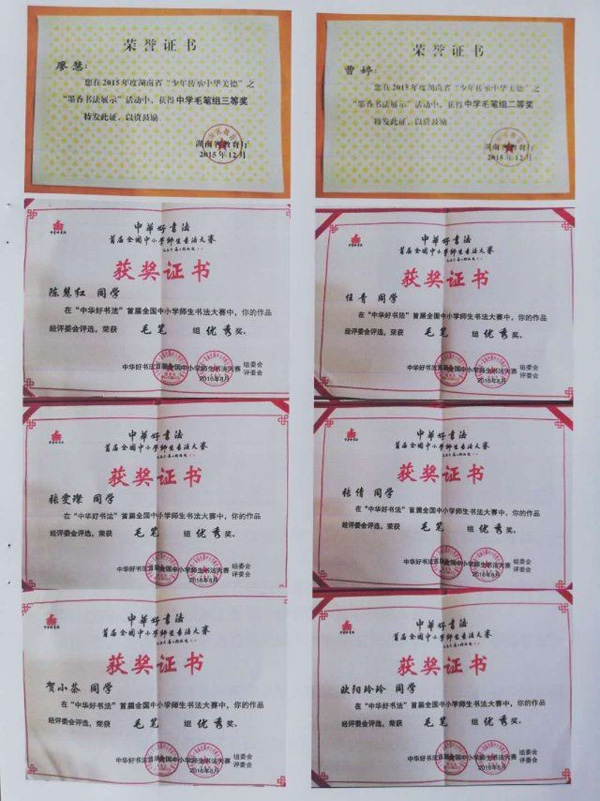 荣誉证书
廖慧:
您在2015年度湖南省“少年传承中华美德”之
“墨香书法展示”活动中,获得中学毛笔组三等奖
特发此证,以资鼓励
湖南省教育厅
2015年12月
荣誉证书
曹婷:
您在2015年度湖南省“少年传承中华美德”之
“墨香书法展示”活动中,获得中学毛笔组二等奖
特发此证,以资鼓励
湖南省教育厅
2015年12月
中华好书法
首届全国中小学师生书法大赛
获奖证书
陈慧红 同学
在“中华好书法”首届全国中小学师生书法大赛中,你的作品
经评委会评选,荣获 毛笔 组 优秀 奖。
中华好书法首届全国中小学师生书法大赛 组委会
评委会
2016年8月
中华好书法
首届全国中小学师生书法大赛
获奖证书
任青 同学
在“中华好书法”首届全国中小学师生书法大赛中,你的作品
经评委会评选,荣获 毛笔 组 优秀 奖。
中华好书法首届全国中小学师生书法大赛 组委会
评委会
2016年8月
中华好书法
首届全国中小学师生书法大赛
获奖证书
张雯 同学
在“中华好书法”首届全国中小学师生书法大赛中,你的作品
经评委会评选,荣获 毛笔 组 优秀 奖。
中华好书法首届全国中小学师生书法大赛 组委会
评委会
2016年8月
中华好书法
首届全国中小学师生书法大赛
获奖证书
张倩 同学
在“中华好书法”首届全国中小学师生书法大赛中,你的作品
经评委会评选,荣获 毛笔 组 优秀 奖。
中华好书法首届全国中小学师生书法大赛 组委会
评委会
2016年8月
中华好书法
首届全国中小学师生书法大赛
获奖证书
贺小芬 同学
在“中华好书法”首届全国中小学师生书法大赛中,你的作品
经评委会评选,荣获 毛笔 组 优秀 奖。
中华好书法首届全国中小学师生书法大赛 组委会
评委会
2016年8月
中华好书法
首届全国中小学师生书法大赛
获奖证书
欧阳玲玲 同学
在“中华好书法”首届全国中小学师生书法大赛中,你的作品
经评委会评选,荣获 毛笔 组 优秀 奖。
中华好书法首届全国中小学师生书法大赛 组委会
评委会
2016年8月